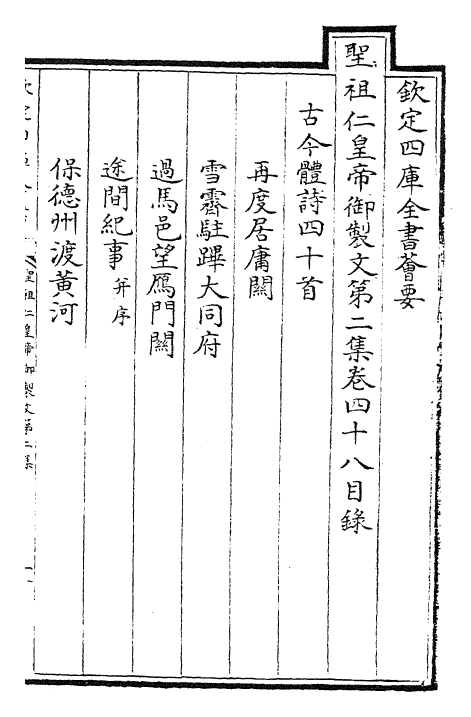 欽定四庫全書薈要
聖祖仁皇帝御製文第二集卷四十八目錄
古今體詩四十首
再度居庸關
雪霽駐蹕大同府
過馬邑望鴈門關
途間紀事 并序
保德州渡黃河
聖祖仁皇帝御製文第二集